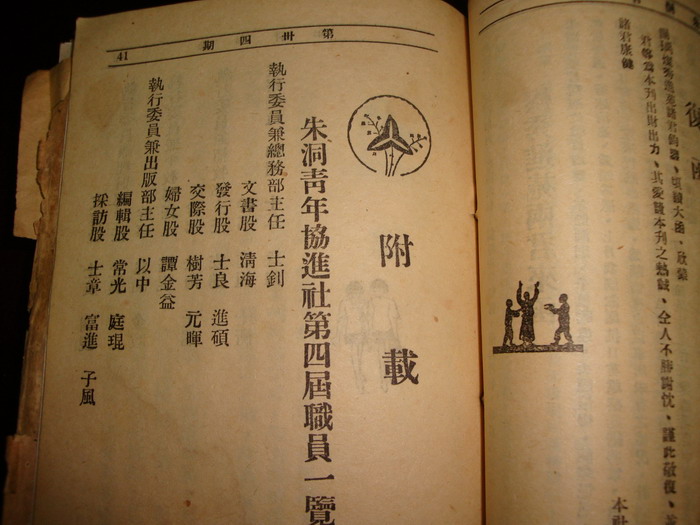 諸君康健
君等為本刊出財出力、其愛護本刊之熱誠、仝人不勝謝忱、謹此敬復、並
本社
第卅四期
41
附載
朱洞青年協進社第四屆職員一覽
執行委員兼總務部主任 士釗
文書股 清海
發行股 士良 進碩
交際股 樹芳 元暉
婦女股 譚金益
執行委員兼出版部主任 以中
編輯股 常光 庭琨
採訪股 士章 富進 子風